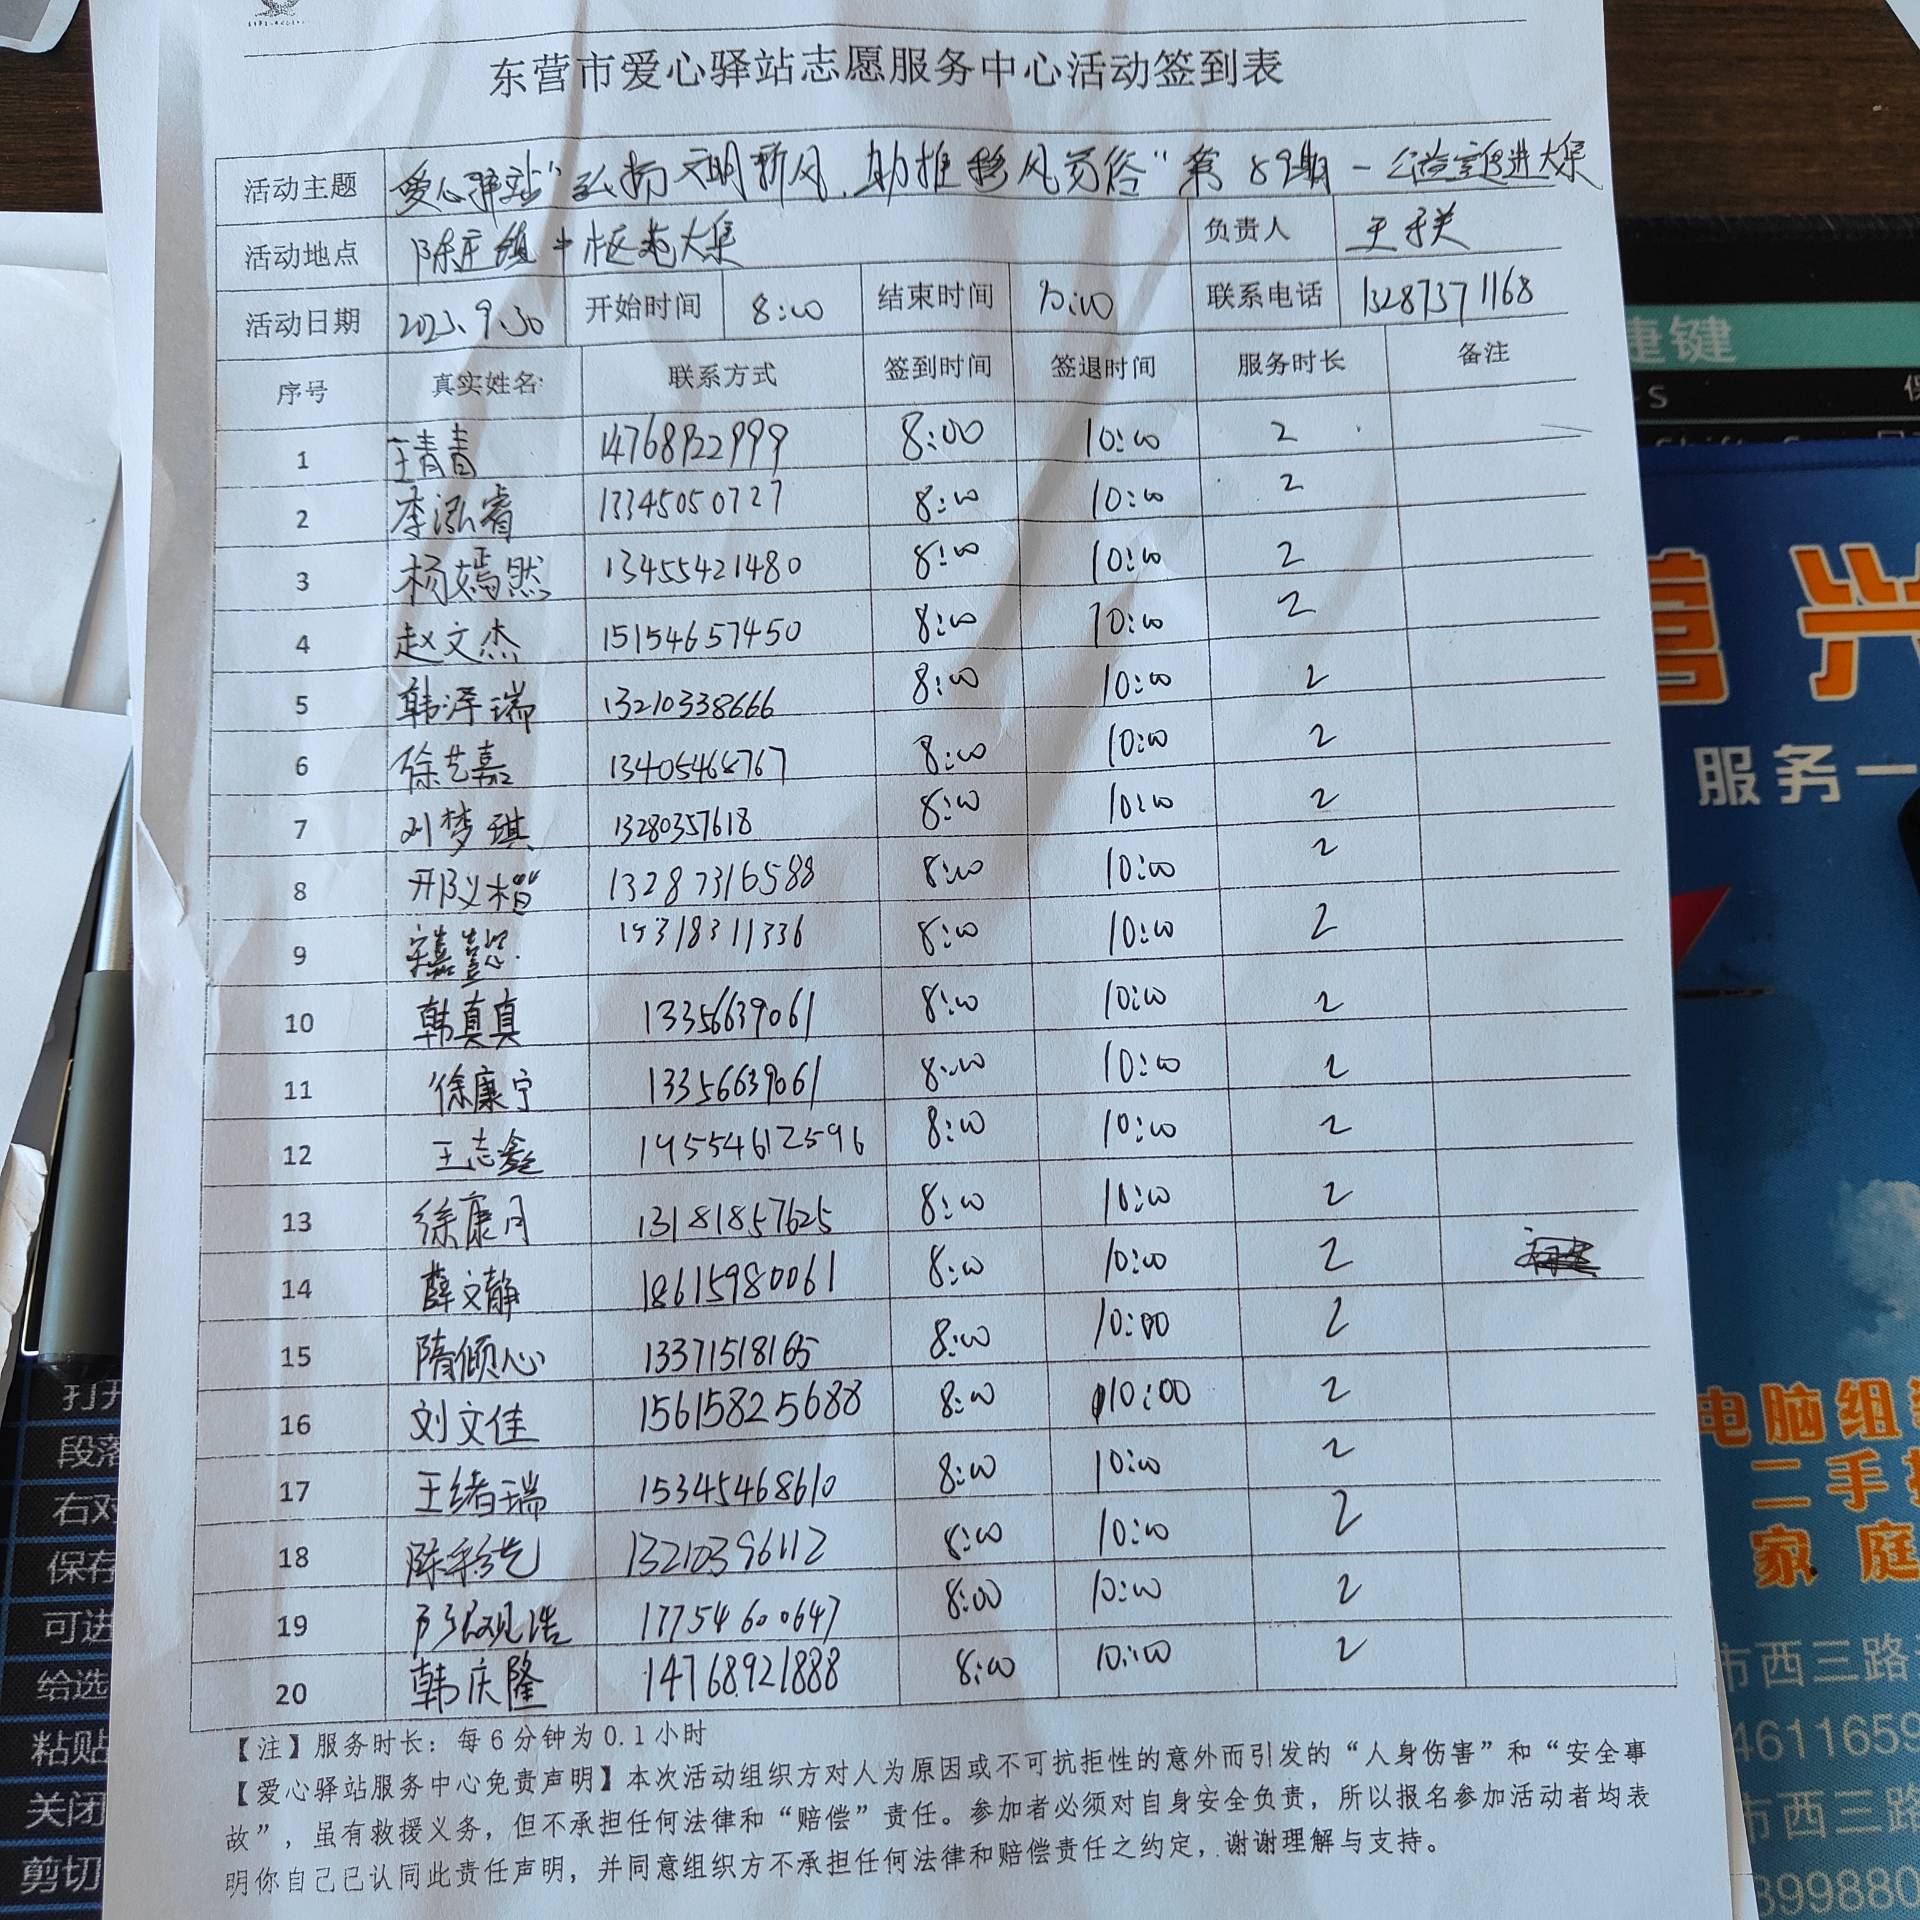 东营市爱心驿站志愿服务中心活动签到表
活动主题 爱心驿站"弘扬文明新风、助推移风易俗"第89期-公益宣传进大集
活动地点 陈庄镇中枢老大集 负责人
活动日期 2023.9.30 开始时间 8:00 结束时间 10:00 联系电话 13287371168
序号 真实姓名 联系方式 签到时间 签退时间 服务时长 备注
1 王青青 14768922999 8:00 10:00 2
2 李泓睿 13345050727 8:00 10:00 2
3 杨嫣然 13455421480 8:00 10:00 2
4 赵文杰 15154657450 8:00 10:00 2
5 韩泽瑞 13210338666 8:00 10:00 2
6 徐艺嘉 13405468767 8:00 10:00 2
7 刘梦琪 13280357618 8:00 10:00 2
8 13287316588 8:00 10:00 2
9 8:00 10:00 2
10 韩真真 13356639061 8:00 10:00 2
11 徐康宁 13356639061 8:00 10:00 2
12 王志鑫 19554612596 8:00 10:00 2
13 徐康月 13181857625 8:00 10:00 2
14 薛文静 18615980061 8:00 10:00 2
15 隋倾心 13371518165 8:00 10:00 2
16 刘文佳 15615825688 8:00 10:00 2
17 王绪瑞 15345468610 8:00 10:00 2
18 13210396112 8:00 10:00 2
19 17754600647 8:00 10:00 2
20 韩庆隆 14768921888 8:00 10:00 2
【注】服务时长：每6分钟为0.1小时
【爱心驿站服务中心免责声明】本次活动组织方对人为原因或不可抗拒性的意外而引发的“人身伤害”和“安全事
故”，虽有救援义务，但不承担任何法律和“赔偿”责任。参加者必须对自身安全负责，所以报名参加活动者均表
明你自己已认同此责任声明，并同意组织方不承担任何法律和赔偿责任之约定，谢谢理解与支持。
捷键
营 兴
服务一
电脑组
二手
家 庭
市西三路
4611659
市西三路
899880
打开
段落
右对
保存
可进
给选
粘贴
关闭
剪切